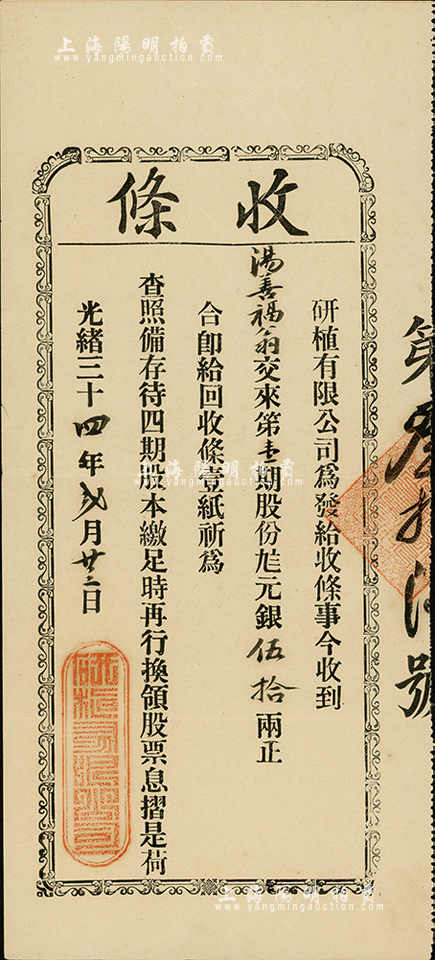 上海陽明拍賣
www.yangmingauction.com
收條
研植有限公司爲發給收條事今收到
湯善福翁交來第壹期股份尨元銀伍拾兩正
合卽給回收條壹紙祈爲
查照備存待四期股本繳足時再行換領股票息摺是荷
光緒三十四年貳月廿三日
上海陽明拍賣
www.yangmingauction.com
上海陽明拍賣
www.yangmingauction.com